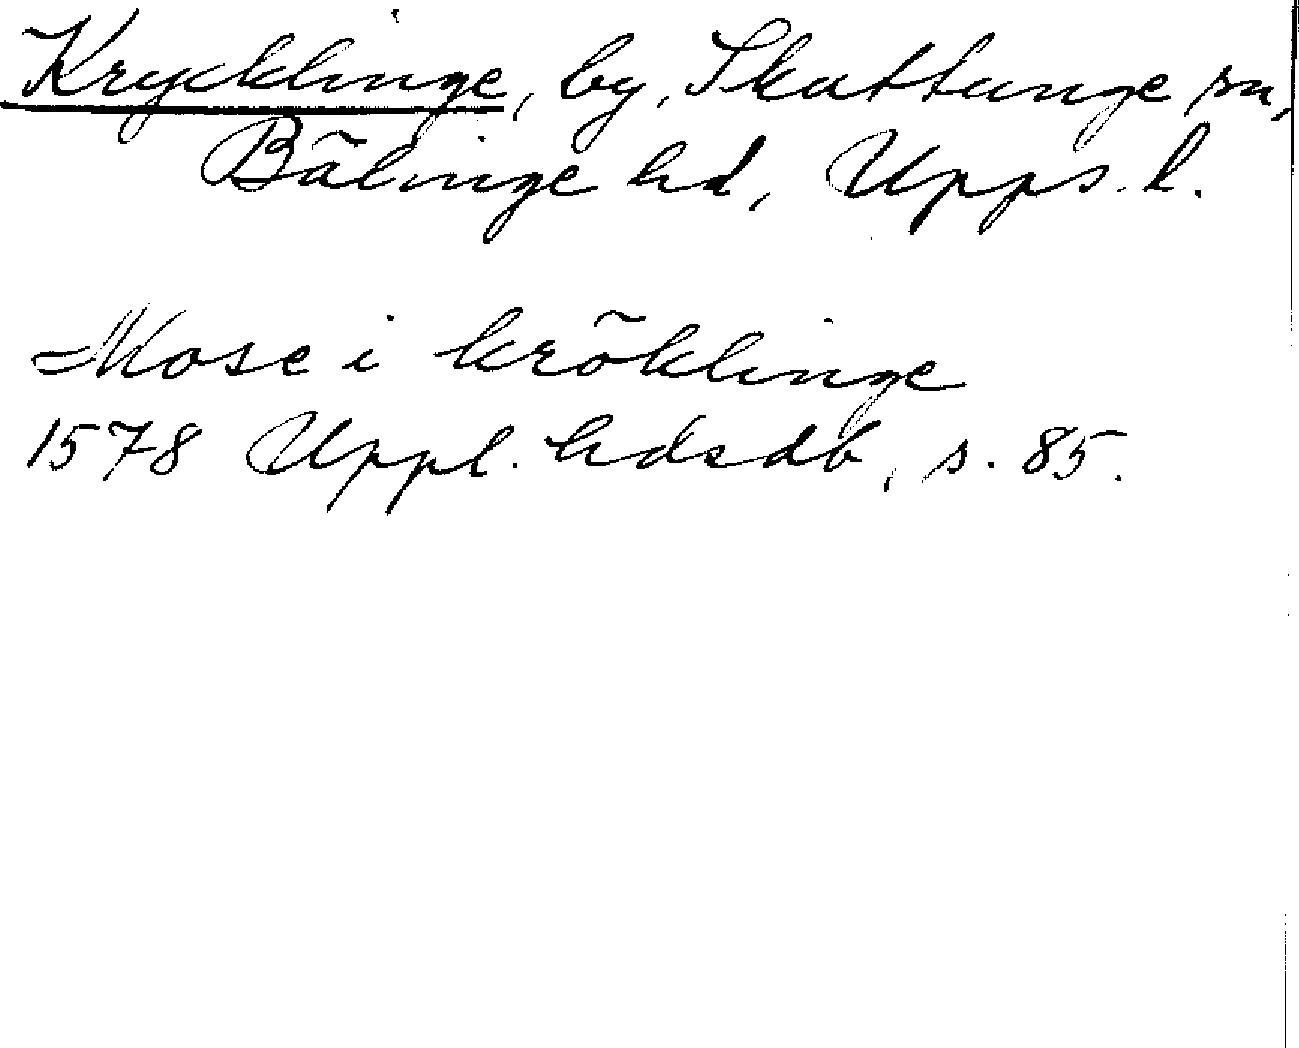 Krycklinge, by, Skuttunge sn,
Bälinge hd, Upps. l.
Mose i kröklinge
1578 Uppl. hdsdb, s. 85.